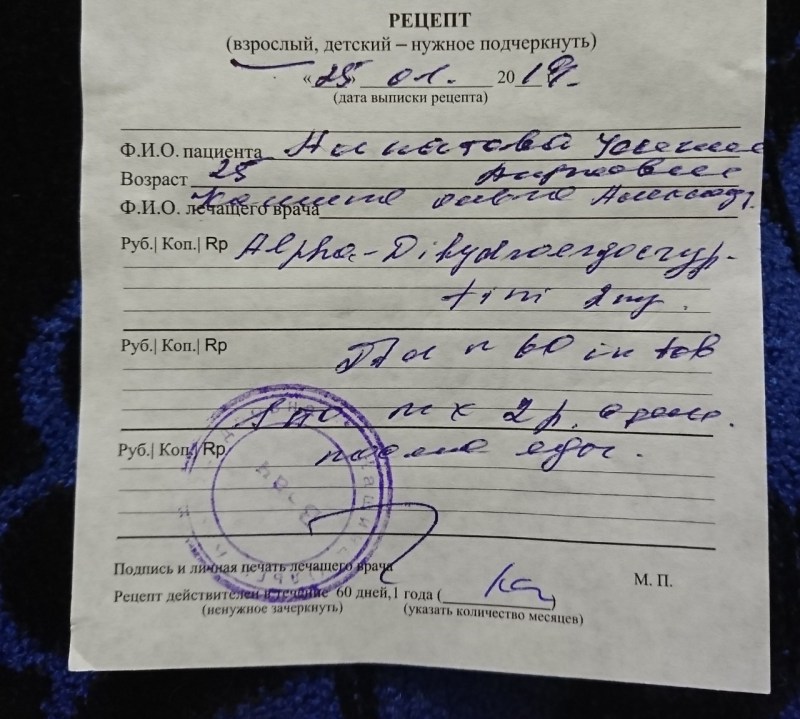 РЕЦЕПТ
(взрослый, детский – нужное подчеркнуть)
«25» 01. 2019.
(дата выписки рецепта)
Ф.И.О. пациента
Возраст 25
Ф.И.О. лечащего врача
Руб.| Коп.| Rp Alpha-Dihydroergocryp-
tini 2mg.
Руб.| Коп.| Rp N 60 in tab
2 р. в день.
Руб.| Коп.| Rp после еды.
Подпись и личная печать лечащего врача
М. П.
Рецепт действителен в течение 60 дней,1 года (            )
(ненужное зачеркнуть) (указать количество месяцев)